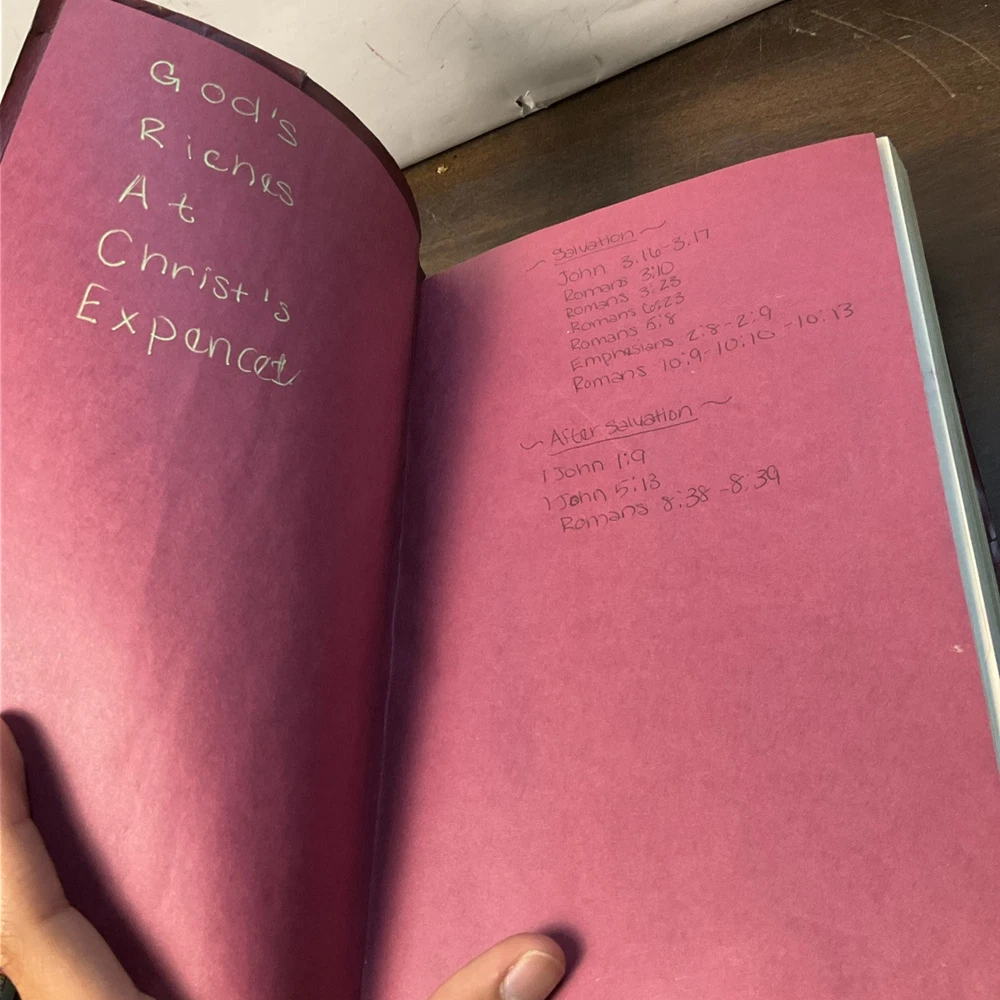 God's
Riches
At
Christ's
Expences
~ Salvation ~
John 3:16-3:17
Romans 3:10
Romans 3:23
Romans 6:23
Romans 5:8
Emphesians 2:8-2:9
Romans 10:9-10:10-10:13
~ After Salvation ~
1 John 1:9
1 John 5:13
Romans 8:38-8:39